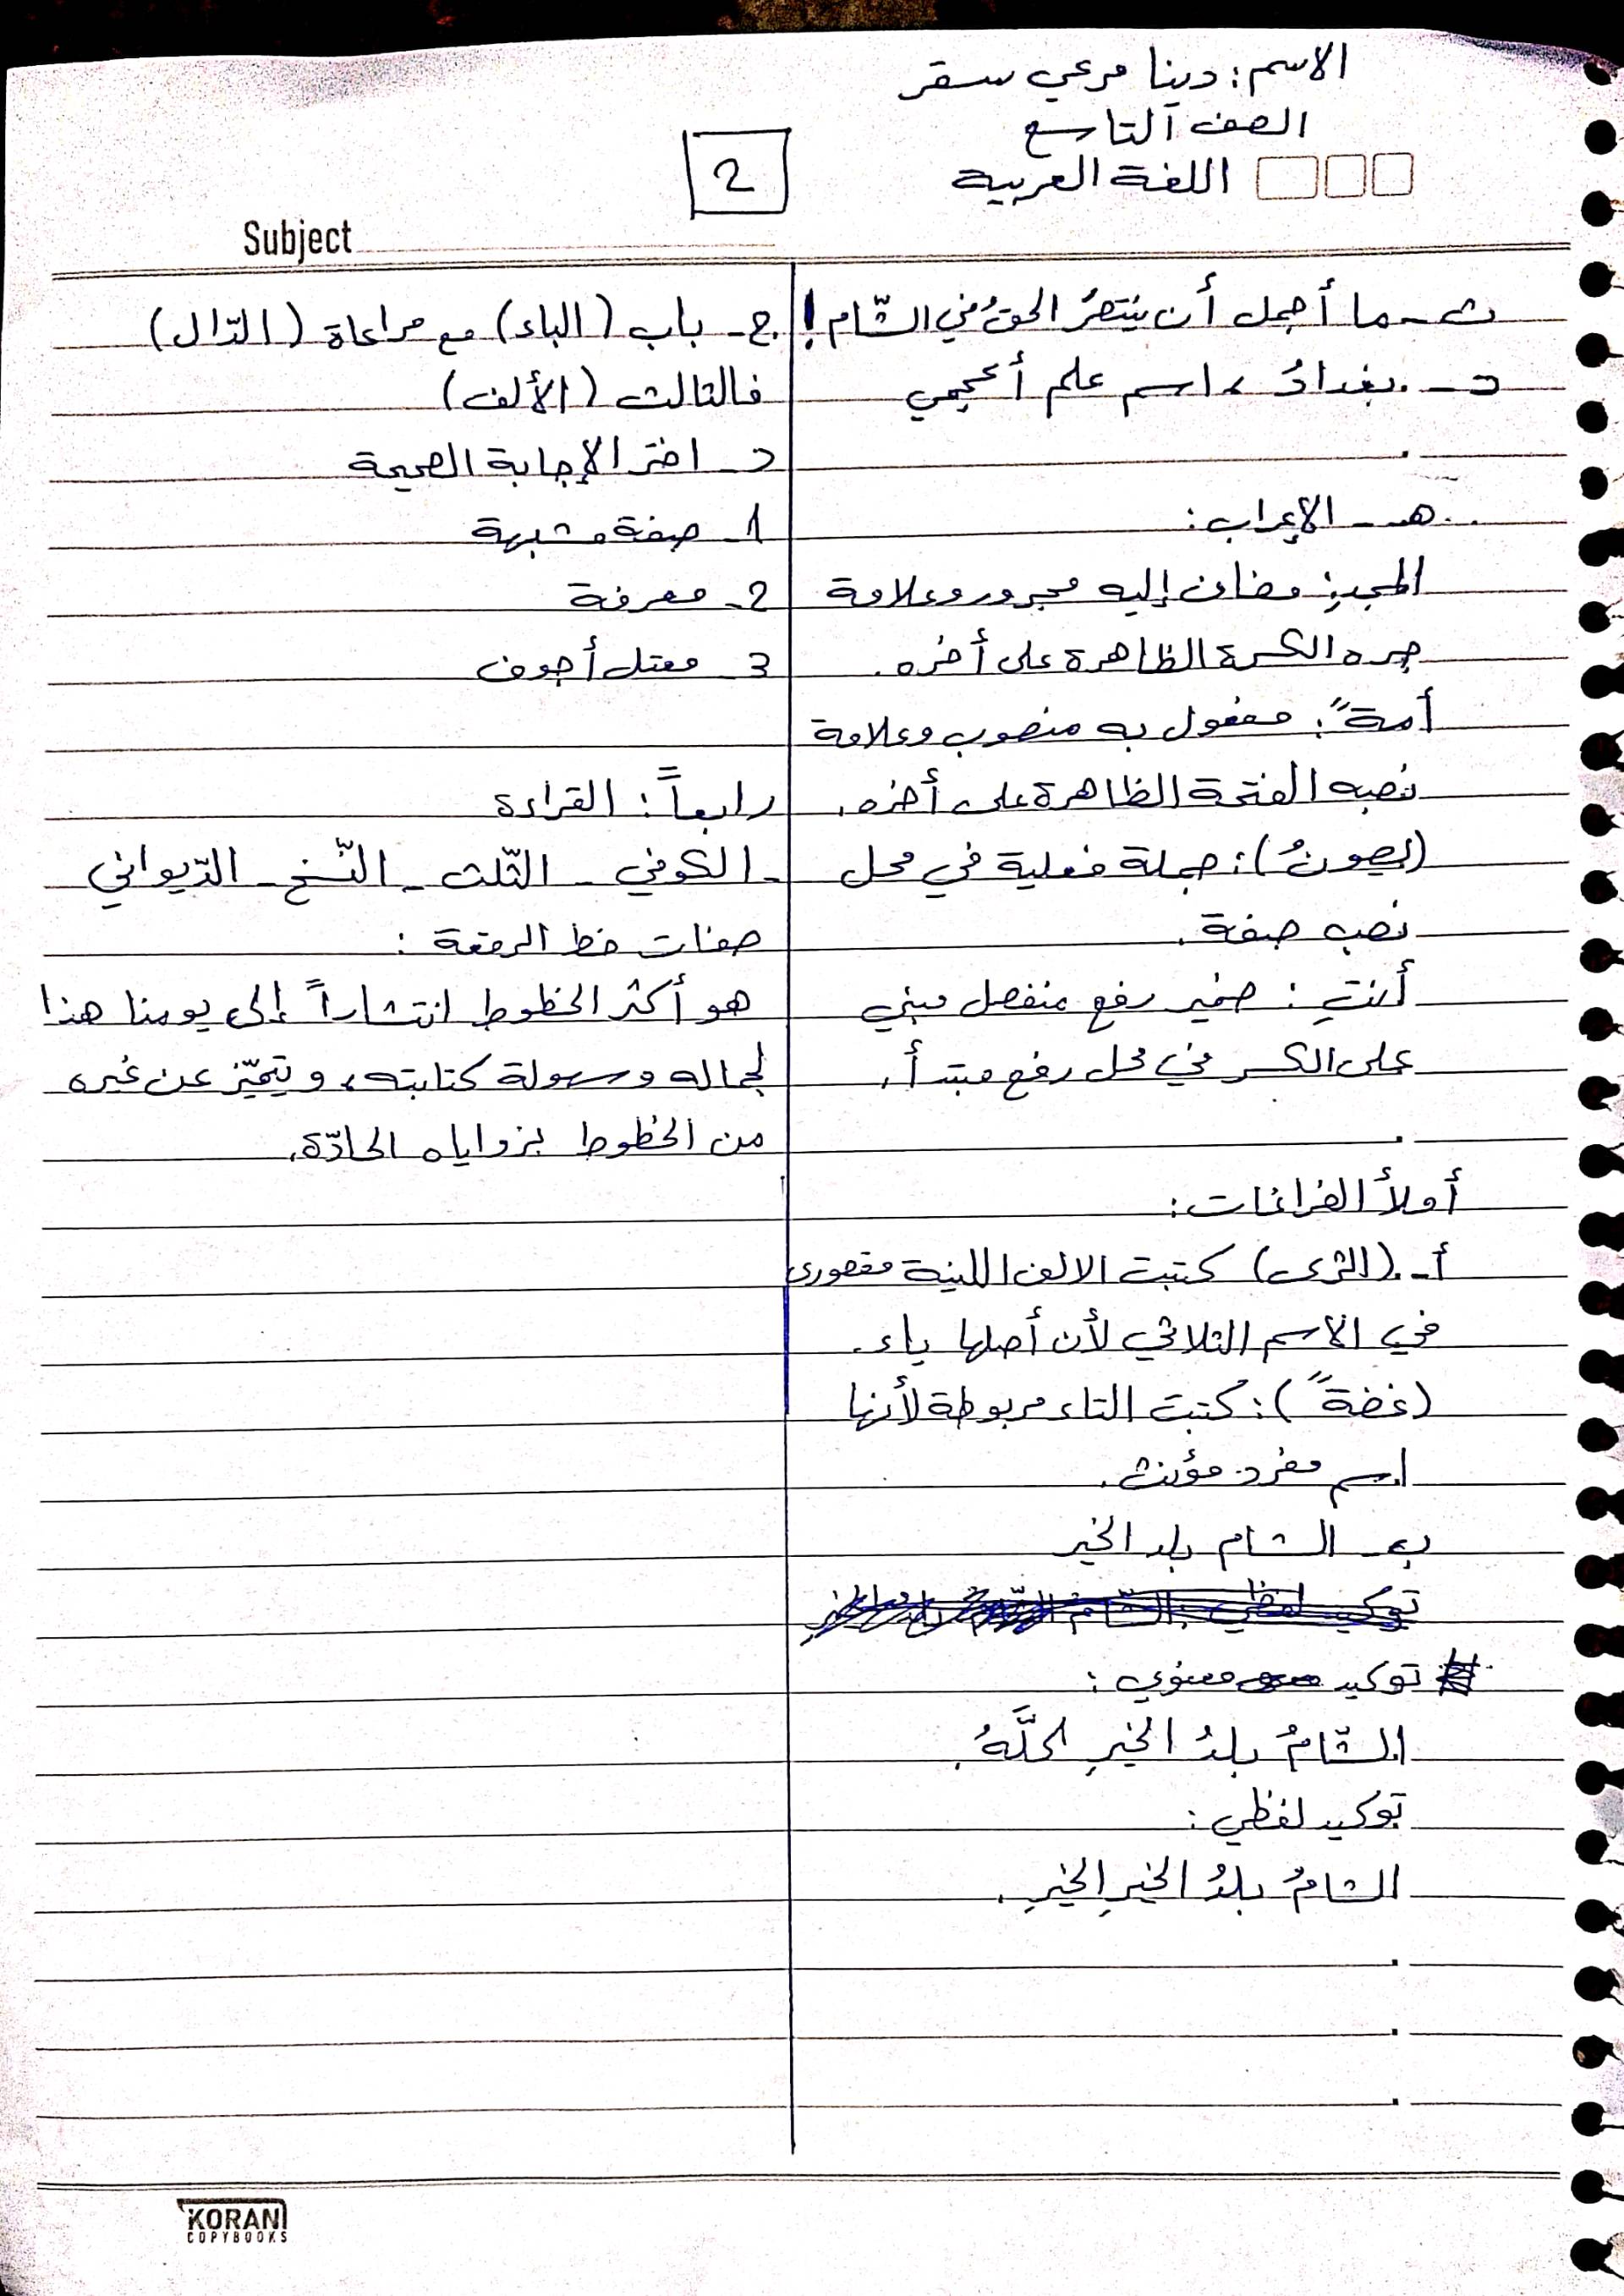 الاسم: دينا مرعي سقر
الصف التاسع
اللغة العربية
2
Subject
ث - ما أجمل أن ينتصرُ الحقُ في الشّام!
د - بغدادُ، اسم علم أعجمي
هـ - الإعراب:
المجدِ: مضاف إليه مجرور وعلامة
جره الكسرة الظاهرة على أخره.
أمةً: مفعول به منصوب وعلامة
نصبه الفتحة الظاهرة على أخره.
(يصونُ): جملة فعلية في محل
نصب صفة.
أنتِ: ضمير رفع منفصل مبني
على الكسر في محل رفع مبتدأ.
أملأ الفراغات:
أ - (الثرى) كتبت الالف اللينة مقصورى
في الاسم الثلاثي لأن أصلها ياء.
(غضةً): كتبت التاء مربوطة لأنها
اسم مفرد مؤنث.
ب - الشام بلد الخير
توكيد معنوي:
الشّامُ بلدُ الخيرِ كلَّهُ.
توكيد لفظي:
الشامُ بلدُ الخيرِ الخيرِ.
ج - باب (الباء) مع مراعاة (الدّال)
فالثالث (الألف)
د - اختر الإجابة الصحيحة
1 - صفة مشبهة
2 - معرفة
3 - معتل أجوف
رابعاً: القراءة
- الكوفي - الثّلث - النّسخ - الدّيواني
صفات خط الرقعة:
هو أكثر الخطوط انتشاراً إلى يومنا هذا
لجماله وسهولة كتابته، ويتميّز عن غيره
من الخطوط بزواياه الحادّة.
KORAN
COPYBOOKS